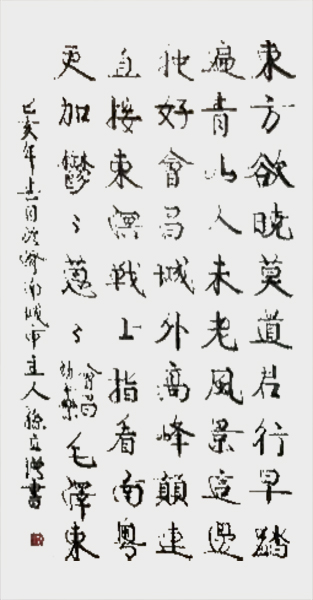 東方欲曉莫道君行早踏
遍青山人未老風景這邊
独好會昌城外高峰顛連
直接東溟戰士指看南粵
更加鬱々蔥々
會昌
毛澤東
己亥年 月於濟南城市主人孫立 書